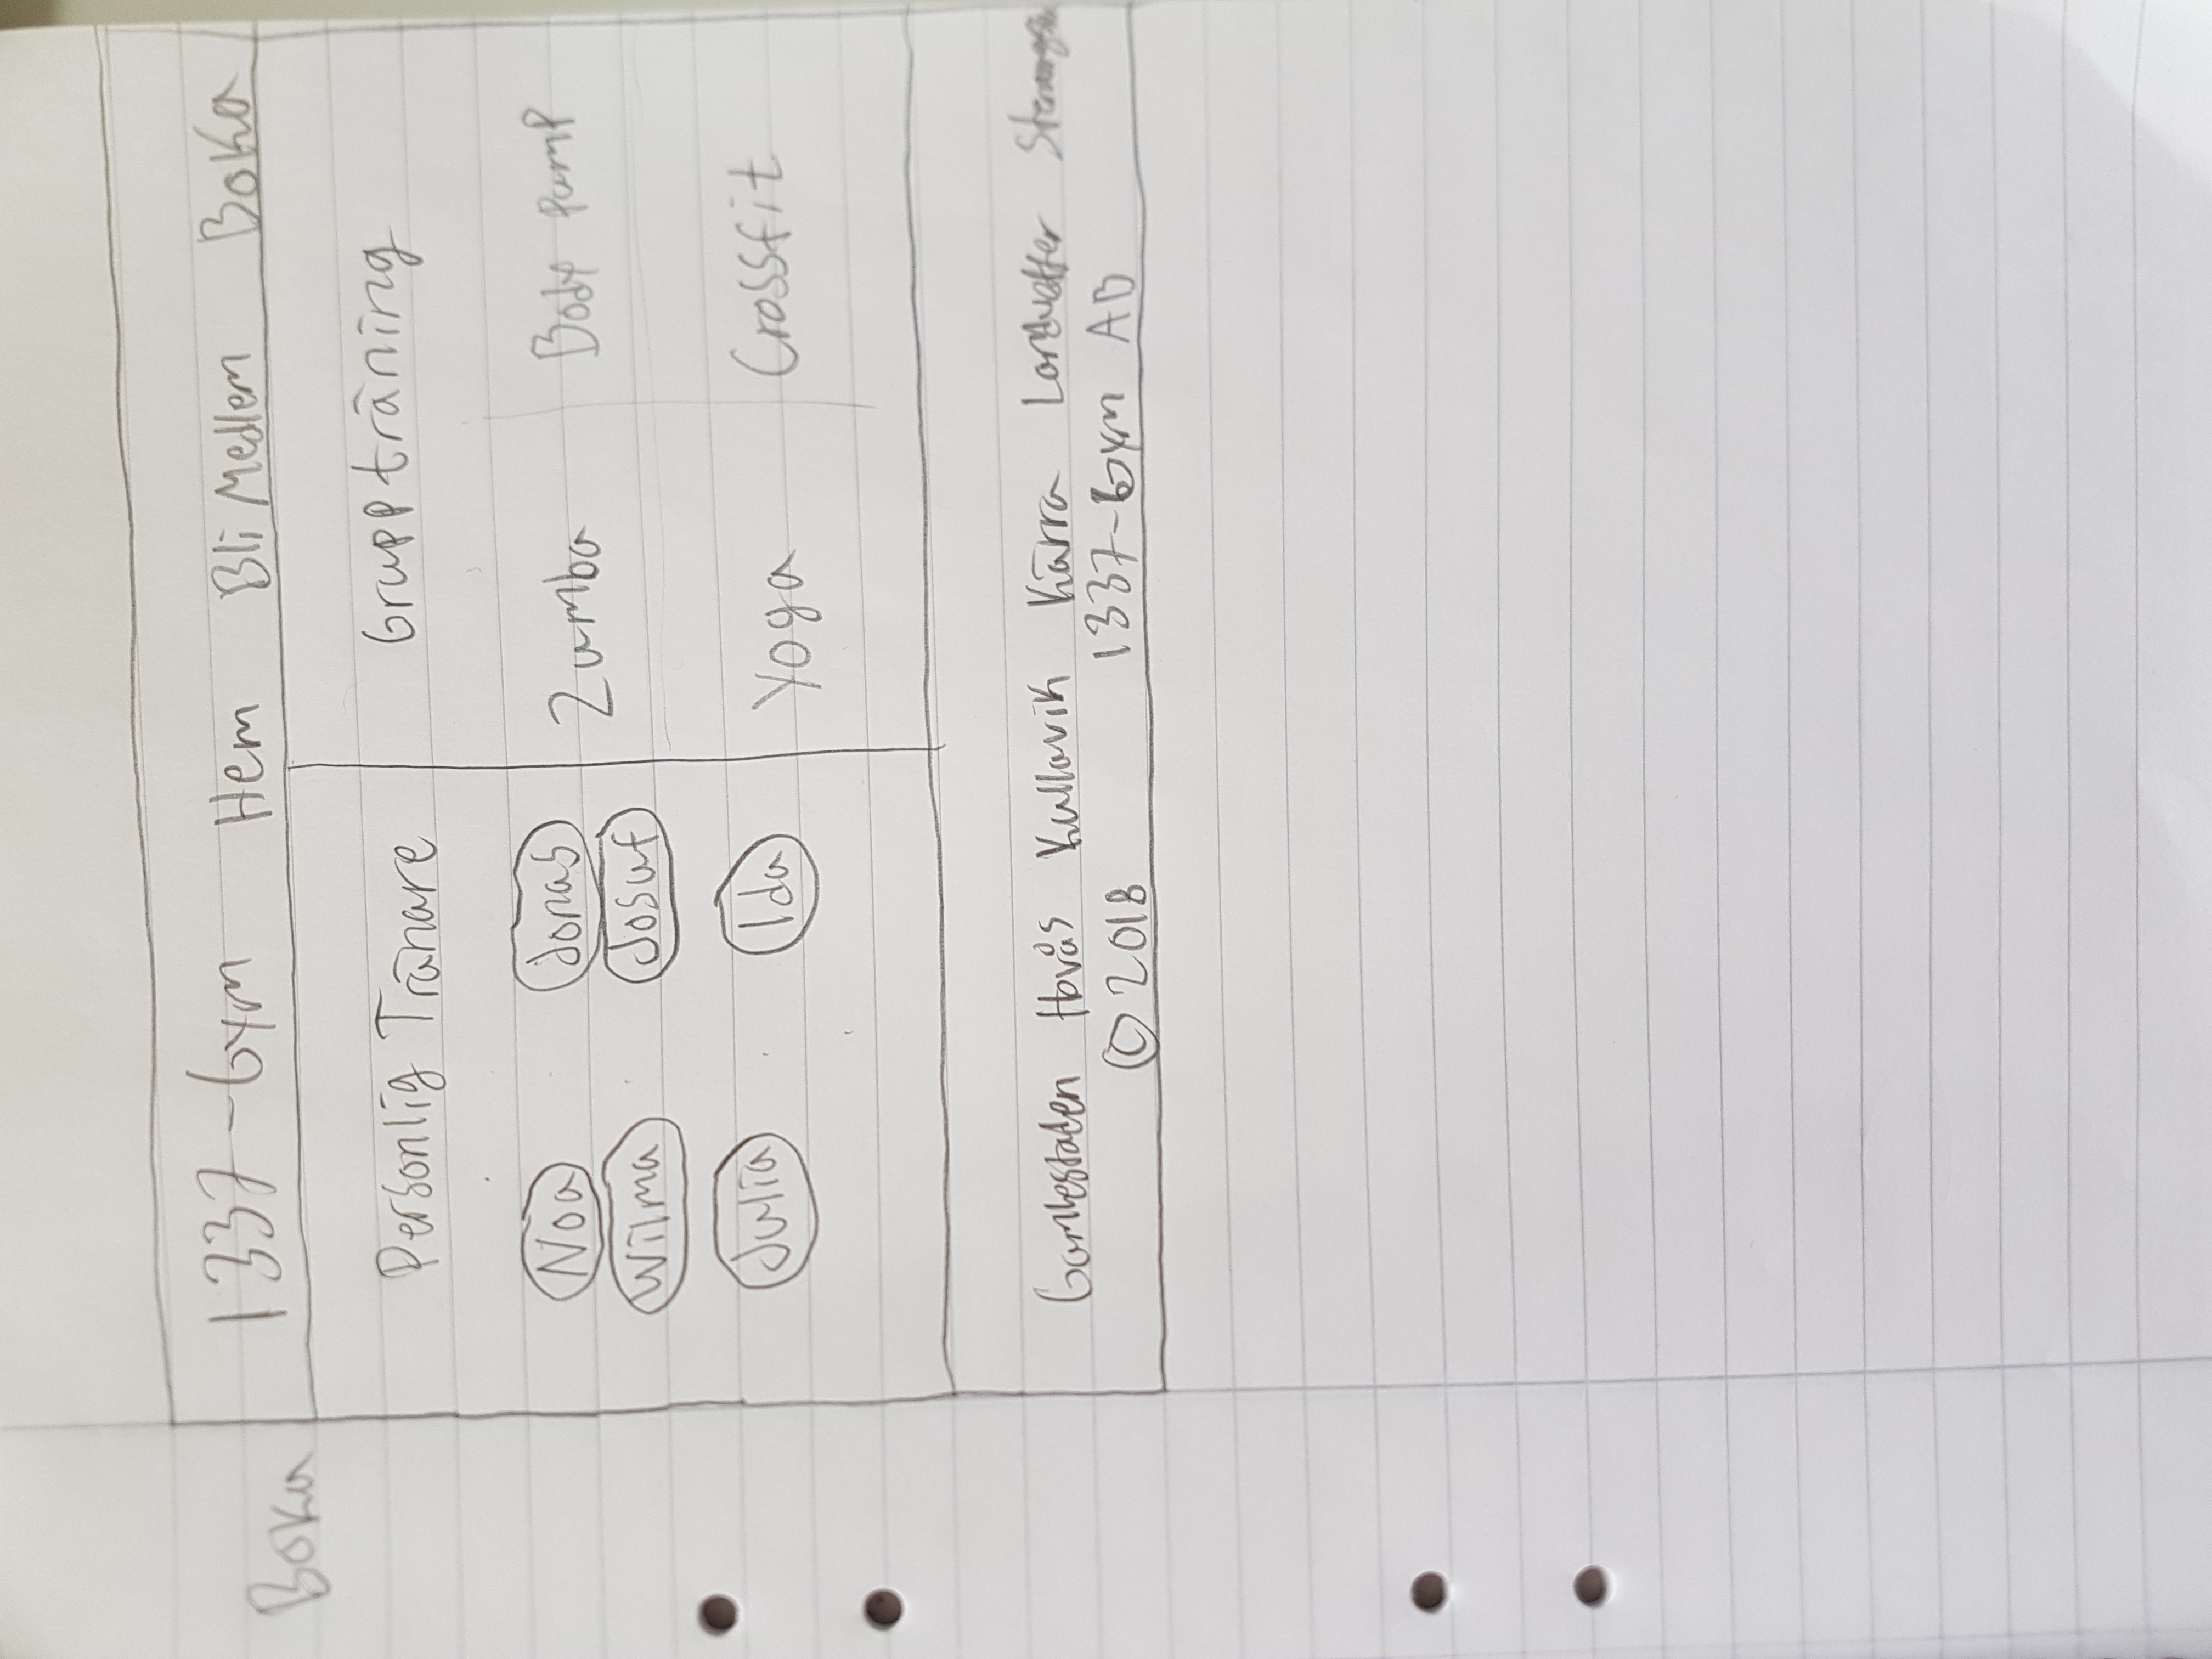 Boka
1337-Gym Hem Bli Medlem Boka
Personlig Tränare
Gruppträning
Noa Jonas
Wilma Josuf
Julia Ida
Zumba Body Pump
Yoga Crossfit
Gamlestaden Hovås Kullavik Kärra Landvetter
© 2018 1337-Gym AB